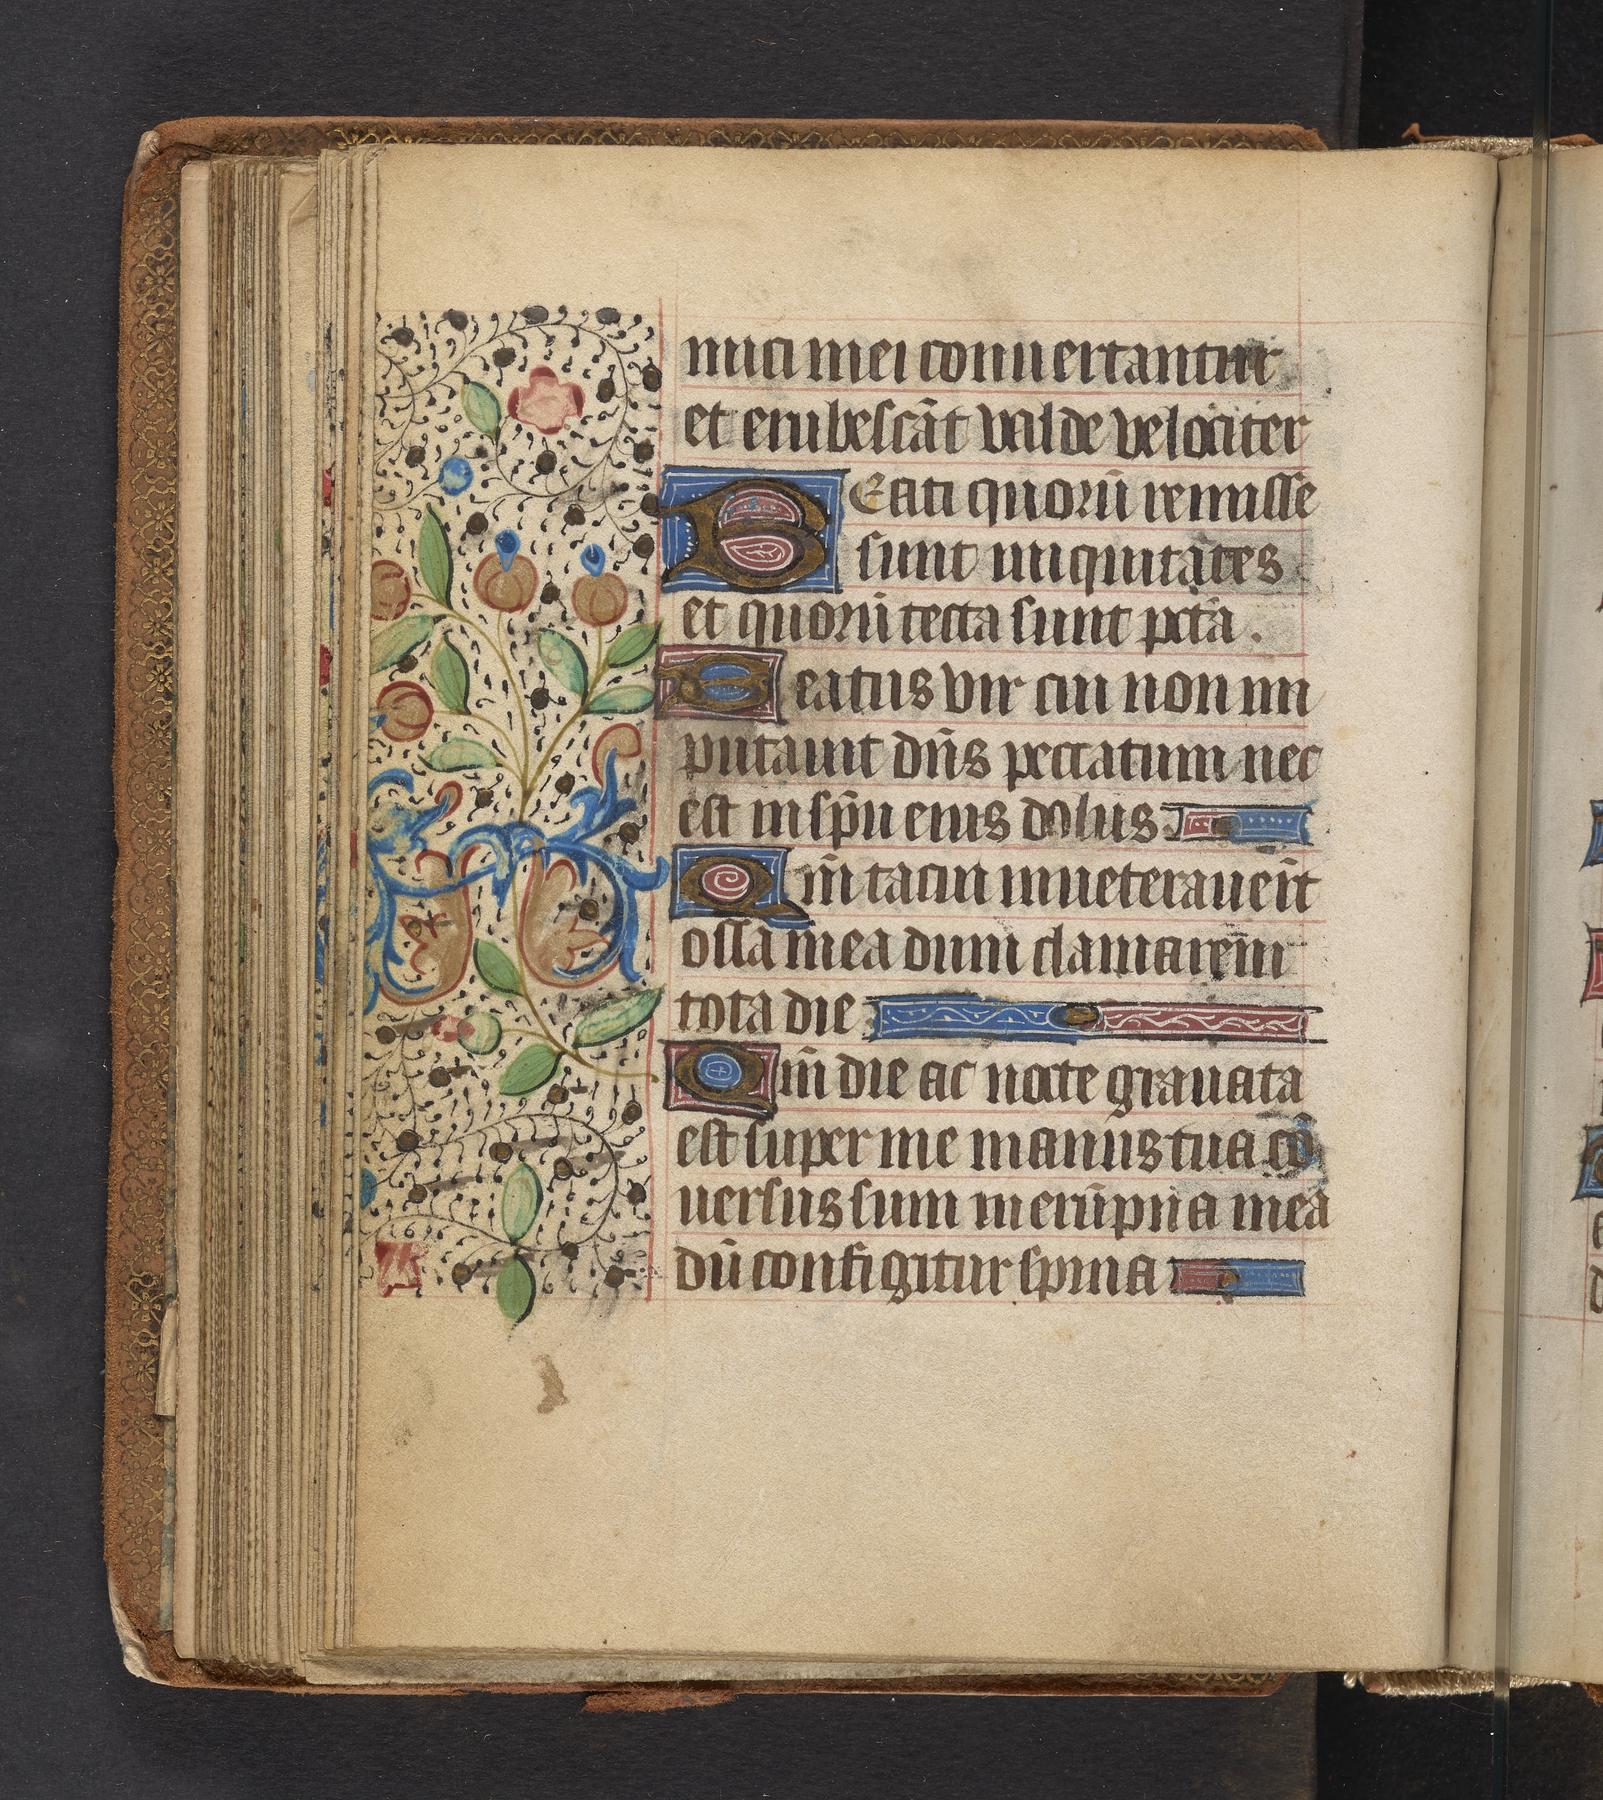 mici mei conuertantur
et erubescāt valde velociter
BEati quorū remisse
sunt iniquitates
et quorū tecta sunt pctā.
Beatus vir cui non im
putauit dn̄s peccatum nec
est in sp̄u eius dolus
Qm̄ tacui inueterauer̄t
ossa mea dum clamarem
tota die
Qm̄ die ac nocte grauata
est super me manus tua cō
uersus sum in erūpna mea
dū configitur spina